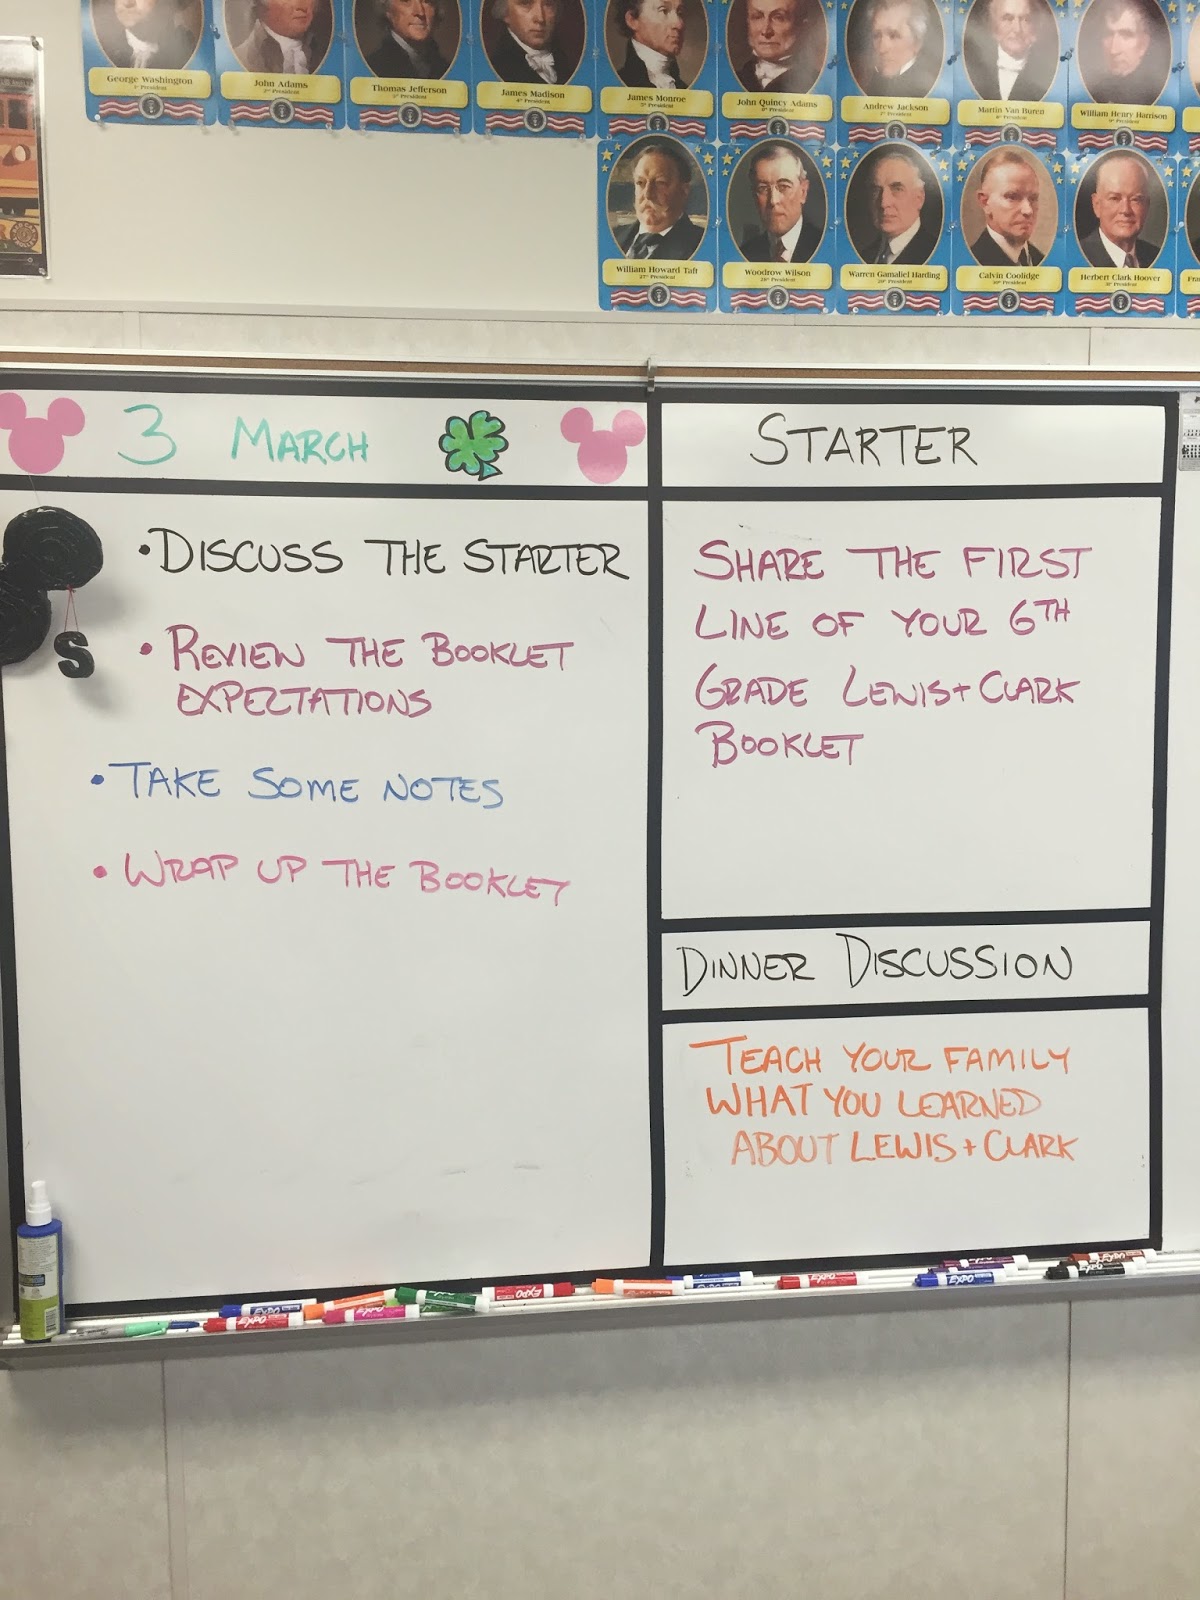 George Washington
1st President
John Adams
2nd President
Thomas Jefferson
3rd President
James Madison
4th President
James Monroe
5th President
John Quincy Adams
6th President
Andrew Jackson
7th President
Martin Van Buren
8th President
William Henry Harrison
9th President
William Howard Taft
27th President
Woodrow Wilson
28th President
Warren Gamaliel Harding
29th President
Calvin Coolidge
30th President
Herbert Clark Hoover
31st President
3 MARCH
• DISCUSS THE STARTER
• REVIEW THE BOOKLET
EXPECTATIONS
• TAKE SOME NOTES
• WRAP UP THE BOOKLET
S
STARTER
SHARE THE FIRST
LINE OF YOUR 6TH
GRADE LEWIS + CLARK
BOOKLET
DINNER DISCUSSION
TEACH YOUR FAMILY
WHAT YOU LEARNED
ABOUT LEWIS + CLARK
EXPO
EXPO
EXPO
EXPO
EXPO
EXPO
EXPO